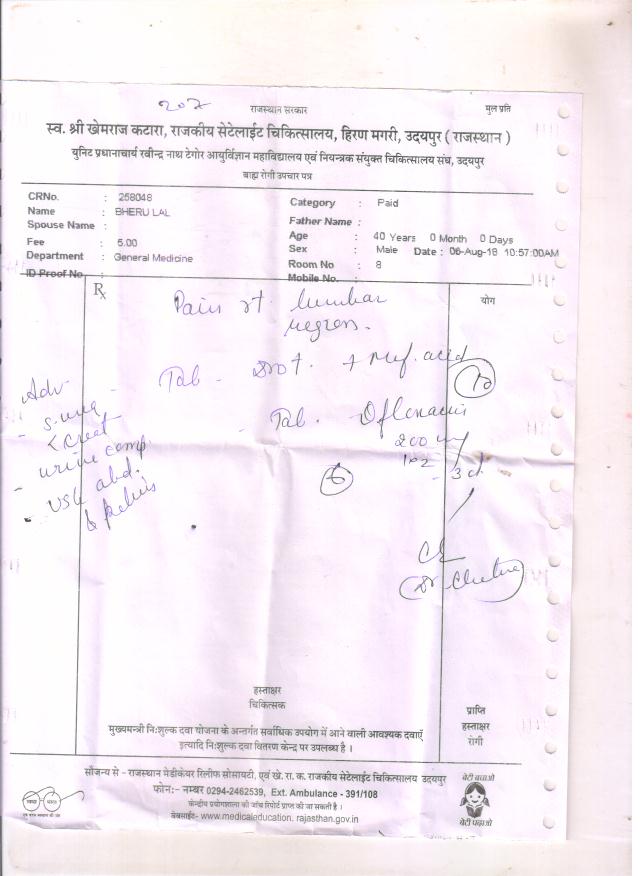 207
राजस्थान सरकार
मुल प्रति
स्व. श्री खेमराज कटारा, राजकीय सेटेलाईट चिकित्सालय, हिरण मगरी, उदयपुर ( राजस्थान )
युनिट प्रधानाचार्य रवीन्द्र नाथ टेगोर आयुर्विज्ञान महाविद्यालय एवं नियन्त्रक संयुक्त चिकित्सालय संघ, उदयपुर
बाह्य रोगी उपचार पत्र
CRNo. : 258048
Category : Paid
Name : BHERU LAL
Spouse Name :
Father Name :
Age : 40 Years 0 Month 0 Days
Fee : 5.00
Sex : Male Date : 06-Aug-18 10:57:00AM
Department : General Medicine
Room No : 8
ID Proof No :
Mobile No. :
Rx
योग
Pain rt. lumbar
region.
Tab - + Mef. acid
10
Adv
- Tab. Ofloxacin
200 mg
- 3 d
- s. urea
< creat
- urine comp
- USG abd.
& pelvis
6
हस्ताक्षर
चिकित्सक
प्राप्ति
हस्ताक्षर
रोगी
मुख्यमन्त्री नि:शुल्क दवा योजना के अन्तर्गत सर्वाधिक उपयोग में आने वाली आवश्यक दवाएँ
इत्यादि नि:शुल्क दवा वितरण केन्द्र पर उपलब्ध है ।
सौजन्य से - राजस्थान मेडीकेयर रिलीफ सोसायटी, एवं खे. रा. क. राजकीय सेटेलाईट चिकित्सालय उदयपुर
फोन:- नम्बर 0294-2462539, Ext. Ambulance - 391/108
केन्द्रीय प्रयोगशाला की जांच रिपोर्ट प्राप्त की जा सकती है ।
वेबसाईट- www.medicaleducation. rajasthan.gov.in
बेटी बचाओ
बेटी पढ़ाओ